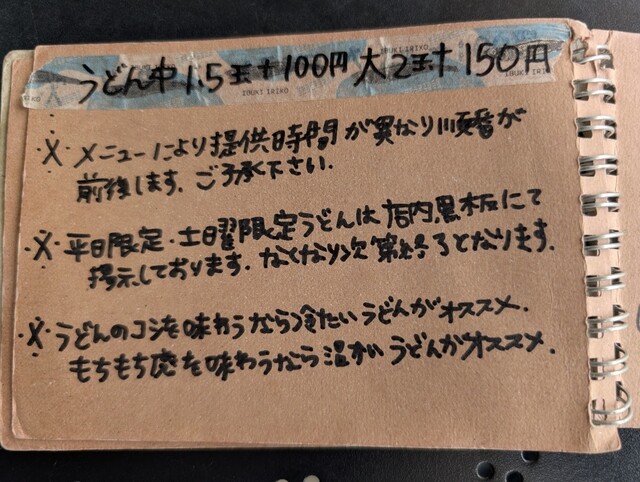 IBUKI IRIKO
うどん中 1.5玉+100円 大2玉+150円
IBUKI IRIKO
※ メニューにより提供時間が異なり順番が
前後します。ご了承下さい。
※ 平日限定・土曜限定うどんは店内黒板にて
掲示しております。なくなり次第終了となります。
※ うどんのコシを味わうなら冷たいうどんがオススメ。
もちもち感を味わうなら温かいうどんがオススメ。